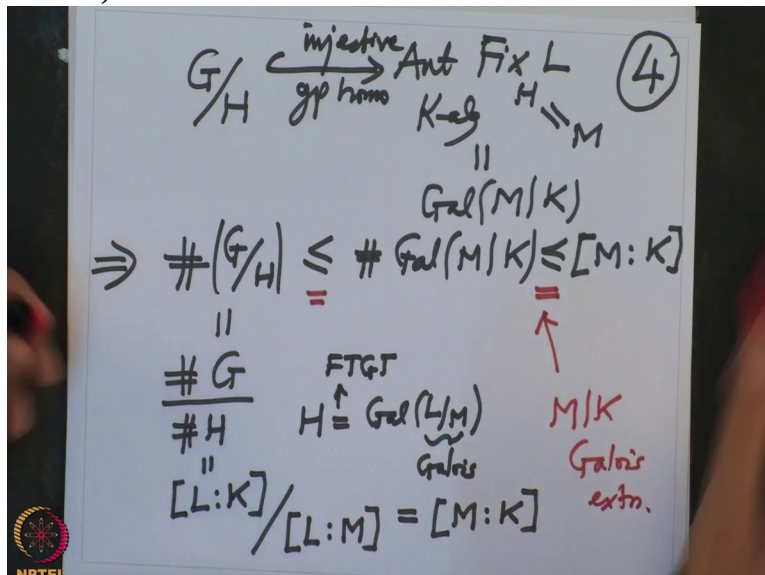 G/H ↪ injective gp homo Aut K-alg Fix H L ④
= M
||
Gal(M|K)
⇒ #(G/H) ≤ # Gal(M|K) ≤ [M:K]
= =
||
#G / #H FTGT ↑ H = Gal(L/M) Galois M|K Galois extn.
||
[L:K] / [L:M] = [M:K]
NPTEL